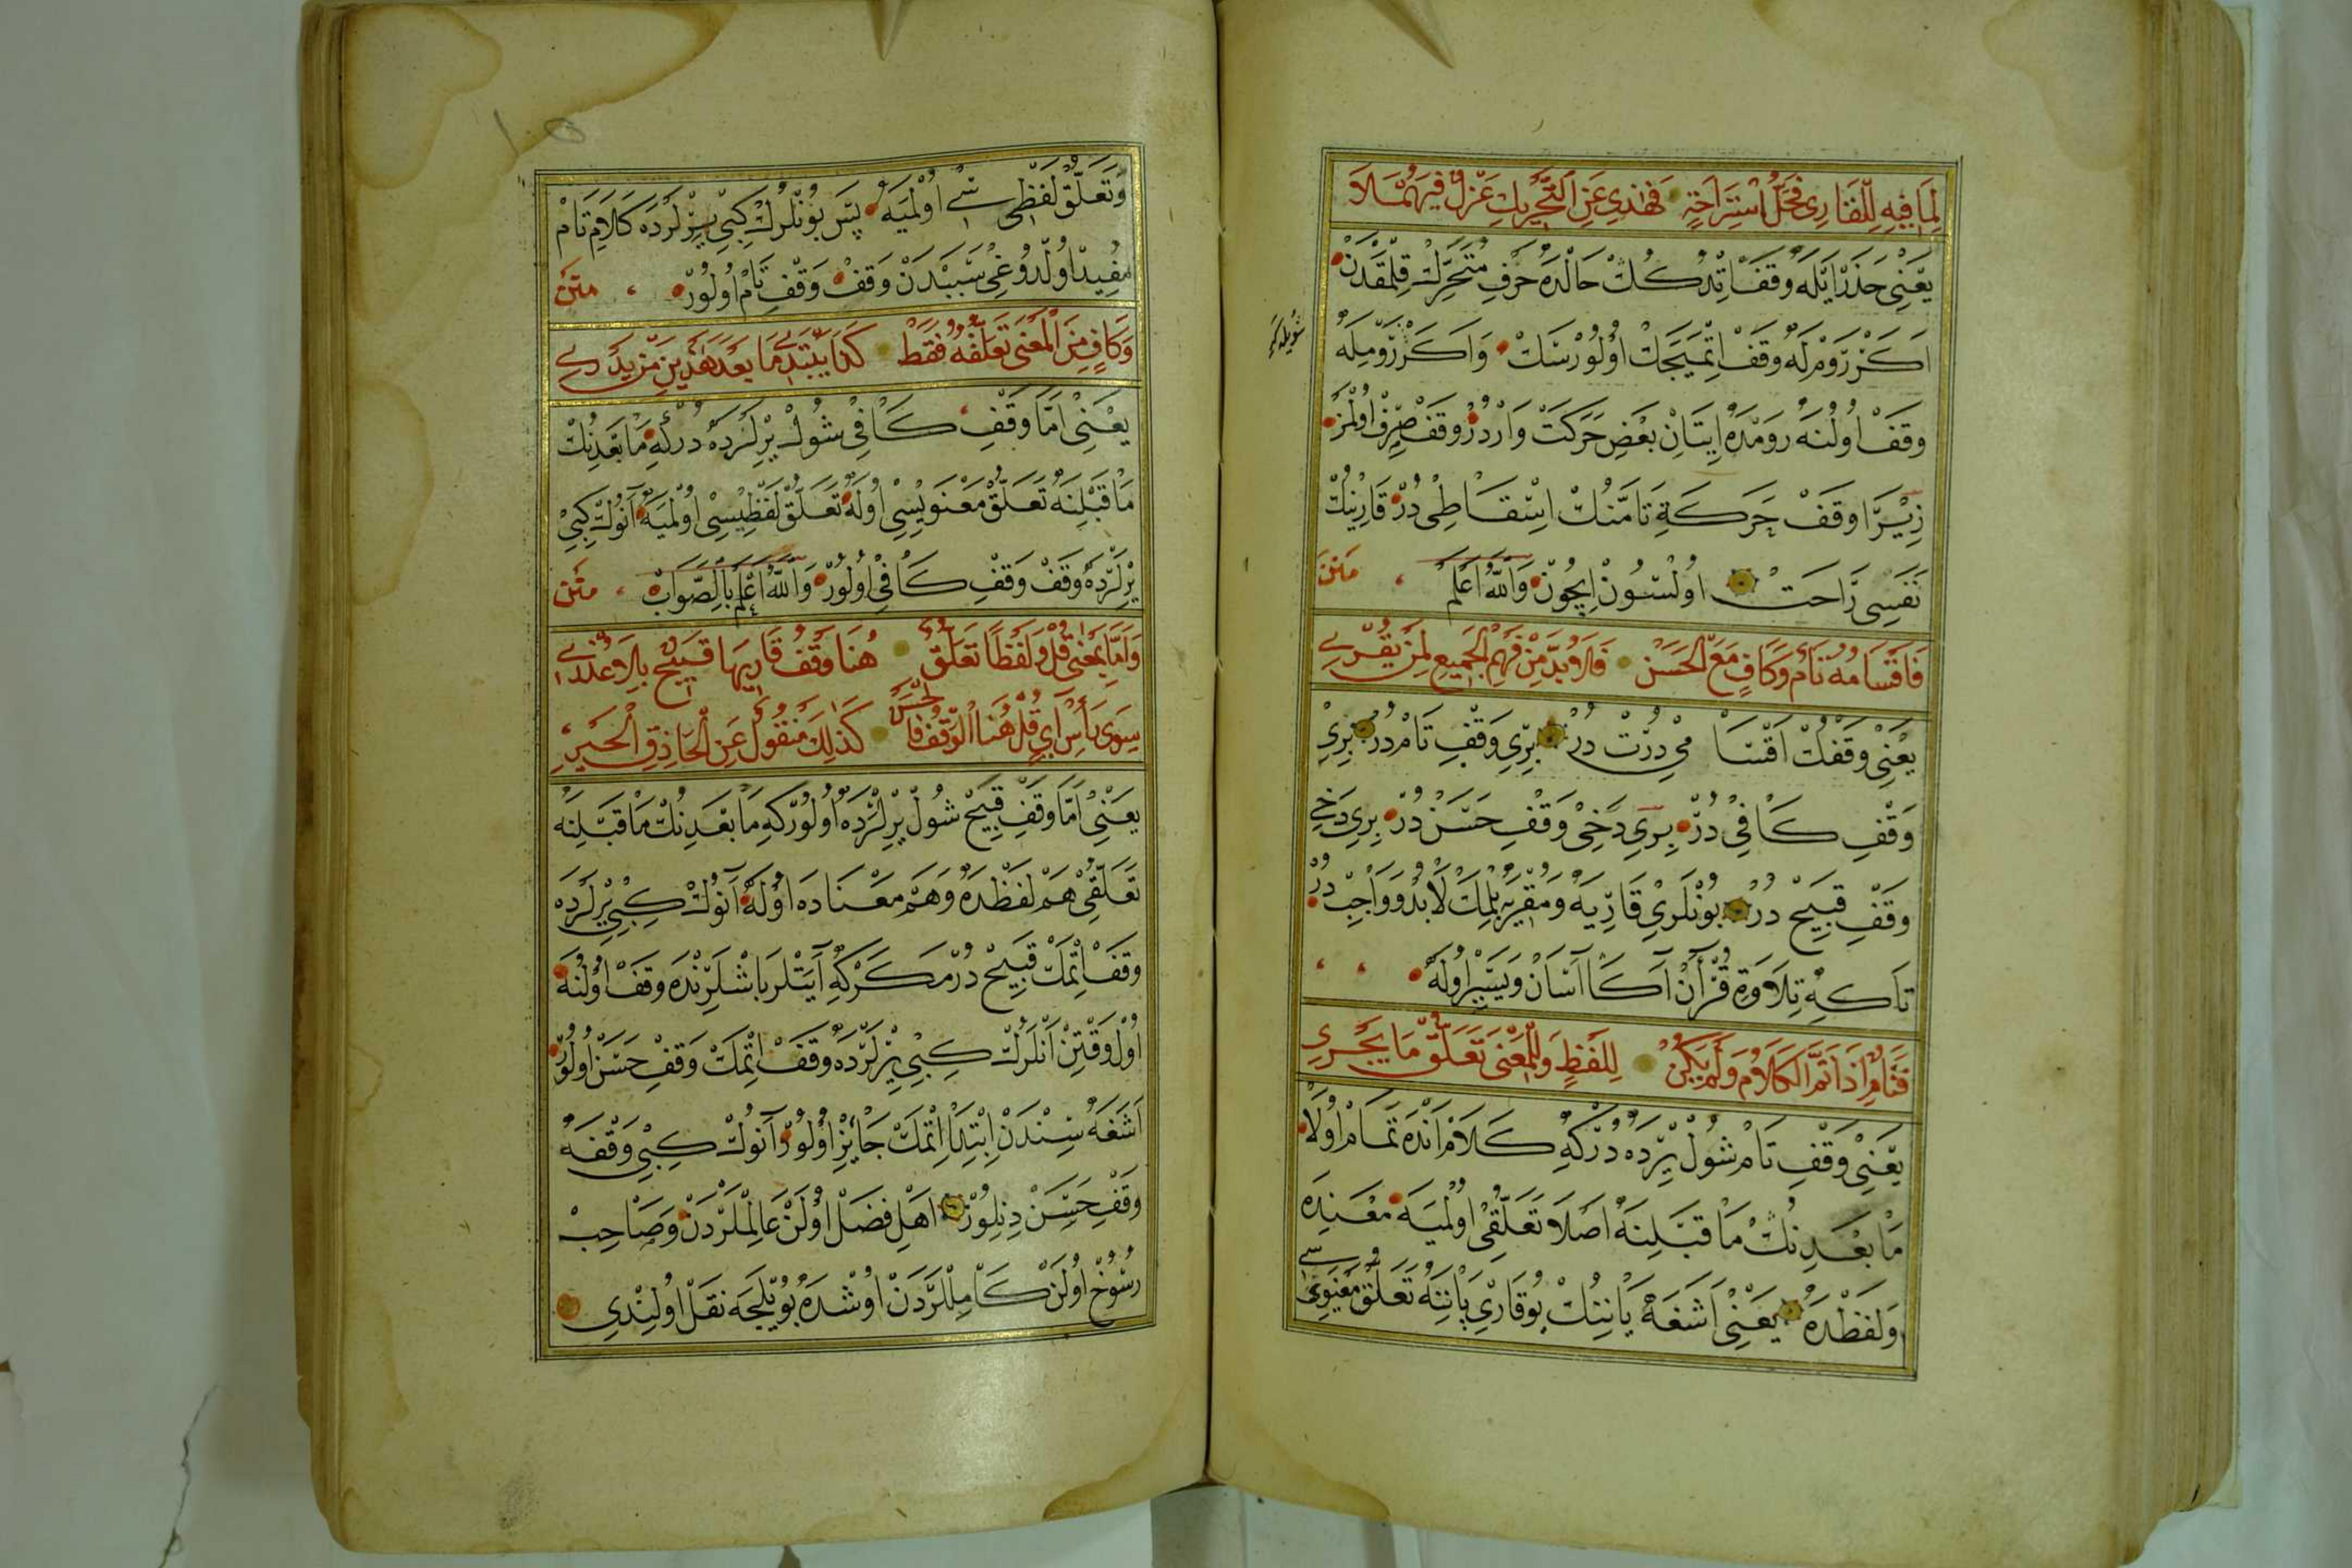 لِمَا فِيهِ لِلْقَارِى مَحَلُّ اسْتِرَاحَةٍ فَهٰذِى عَنِ التَّحْرِيكِ عَزْلٌ فِيَهُمَّلَا
يَعْنِى حَذَرْ اَيْلَه وَقَفْ اِتْدُكُكْ حَالْدَه حَرْفِ مُتَحَرِّكْ قِلْمَقْدَنْ
اَكَرْ رَوْمْلَه وَقَفْ اِتْمَيَجَكْ اُولُورْسَكْ وَاَكَرْ رَوْمِلَه
شُويْلَه كِه
وَقَفْ اُولُنَه رَوْمْدَه اِيتَانِ بَعْضِ حَرَكَتْ وَارْدُرْ وَقَفْ صِرْفْ اُولْمَزْ
زِيْرَا وَقَفْ حَرَكَةِ تَامَّنُكْ اِسْقَاطِى دُرْ قَارِنُكْ
نَفَسِى رَاحَتْ اُولْسُونْ اِيچُونْ وَاللّٰهُ اَعْلَمُ ، مَتْن
فَاَقْسَامُهُ تَامٌ وَكَافٍ مَعَ الْحَسَنْ فَلَا بُدَّ مِنْ فَهْمِ الْجَمِيعِ لِمَنْ يُقْرِى
يَعْنِى وَقَفُكْ اَقْسَامِى دُرْتْ دُرْ بِرِى وَقْفِ تَامْ دُرْ بِرِى
وَقْفِ كَافِى دُرْ بِرِى دَخِى وَقْفِ حَسَنْ دُرْ بِرِى دَخِى
وَقْفِ قَبِيحْ دُرْ بُونْلَرِى قَارِيَه وَمُقْرِيَه بِلْمَكْ لَابُدْ وَوَاجِبْ دُرْ
تَا كِه تِلَاوَةِ قُرْآنْ آكَا آسَانْ وَيَسِيرْ اُولَه
فَتَامٌ اِذَا تَمَّ الْكَلَامُ وَلَمْ يَكُنْ لِلَفْظٍ وَلِلْمَعْنَى تَعَلُّقٌ مَا يَجْرِى
يَعْنِى وَقْفِ تَامْ شُولْ يِرْدَه دُرْ كِه كَلَامْ اَنْدَه تَمَامْ اُولَا
مَا بَعْدِنُكْ مَا قَبْلِنَه اَصْلَا تَعَلُّقِى اُولْمَيَه مَعْنِدَه
وَلَفْظْدَه يَعْنِى اَشَغَه يَانِنُكْ يُوقَارِى يَانِنَه تَعَلُّقِ مَعْنَوِيسِى
وَتَعَلُّقِ لَفْظِىسِى اُولْمَيَه پَسْ بُونْلَرُكْ كِبِى يِرْلَرْدَه كَلَامِ تَامْ
مُفِيدْ اُولْدُوغِى سَبَبْدَنْ وَقَفْ وَقْفِ تَامْ اُولُورْ ، مَتْن
وَكَافٍ مِنَ الْمَعْنَى تَعَلُّقُهُ فَقَطْ كَذَا يُبْتَدَى مَا بَعْدَ هٰذَيْنِ مَزِيدِى
يَعْنِى اَمَّا وَقْفِ كَافِى شُولْ يِرْلَرْدَه دُرْ كِه مَا بَعْدِنُكْ
مَا قَبْلِنَه تَعَلُّقِ مَعْنَوِيسِى اُولَه تَعَلُّقِ لَفْظِيسِى اُولْمَيَه آنُوكْ كِبِى
يِرْلَرْدَه وَقَفْ وَقْفِ كَافِى اُولُورْ وَاللّٰهُ اَعْلَمُ بِالصَّوَابْ ، مَتْن
وَاَمَّا بِمَعْنًى قُلْ وَلَفْظًا تَعَلُّقٌ هُنَا وَقْفُ قَارِيهَا قَبِيحٌ بِلَا عُذْرِى
سِوَى رَأْسِ اٰىٍ قُلْ هُنَا الْوَقْفُ فَالْحَسَنْ كَذٰلِكَ مَنْقُولٌ عَنِ الْحَاذِقِ الْحَبْرِ
يَعْنِى اَمَّا وَقْفِ قَبِيحْ شُولْ يِرْلَرْدَه اُولُورْ كِه مَا بَعْدِنُكْ مَا قَبْلِنَه
تَعَلُّقِى هَمْ لَفْظْدَه وَهَمْ مَعْنَادَه اُولَه آنُوكْ كِبِى يِرْلَرْدَه
وَقَفْ اِتْمَكْ قَبِيحْ دُرْ مَكَرْ كِه آيَتْلَرْ بَاشْلَرِنْدَه وَقَفْ اُولُنَه
اُولْ وَقْتِنْ اَنْلَرُكْ كِبِى يِرْلَرْدَه وَقَفْ اِتْمَكْ وَقْفِ حَسَنْ اُولُورْ
اَشَغَه سِنْدَنْ اِبْتِدَا اِتْمَكْ جَائِزْ اُولُورْ آنُوكْ كِبِى وَقْفَه
وَقْفِ حَسَنْ دِنِلُورْ اَهْلِ فَضَلْ اُولَنْ عَالِمْلَرْدَنْ وَصَاحِبْ
رُسُوخْ اُولَنْ كَامِلْلَرْدَنْ اُوشْدَه بُويْلَجَه نَقَلْ اُولِنْدِى